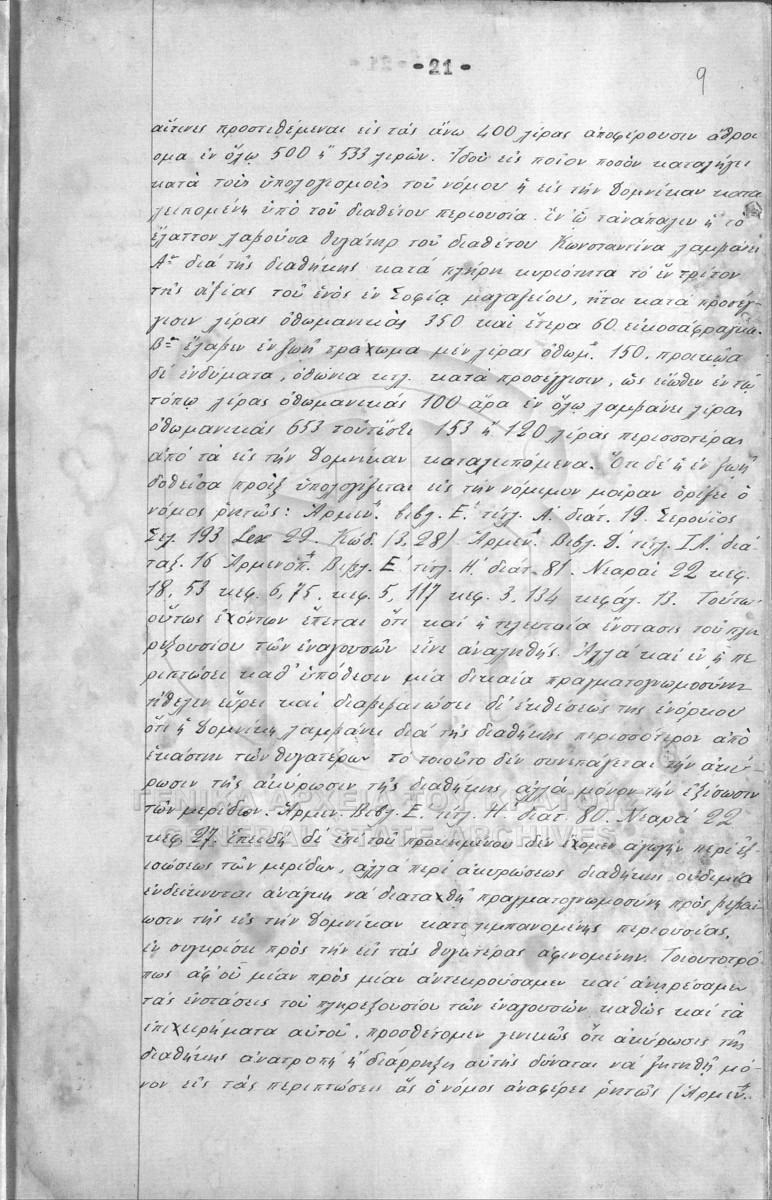 - 21 -
9
αἵτινες προστιθέμεναι εἰς τὰς ἄνω 400 λίρας ἀποφέρουσιν ἄθροι
σμα ἐν ὅλῳ 500 ἢ 533 λιρῶν. Ἰδοὺ εἰς ποῖον ποσὸν καταλήγει
κατὰ τοὺς ὑπολογισμοὺς τοῦ νόμου ἡ εἰς τὴν Δομνίκαν κατα
λειπομένη ὑπὸ τοῦ διαθέτου περιουσία. ἐν ᾧ τἀνάπαλιν ἡ τὸ
ἔλαττον λαβοῦσα θυγάτηρ τοῦ διαθέτου Κωνσταντίνα λαμβάνει
Αον διὰ τῆς διαθήκης κατὰ πλήρη κυριότητα τὸ ἓν τρίτον
τῆς ἀξίας τοῦ ἑνὸς ἐν Σοφίᾳ μαγαζείου, ἤτοι κατὰ προσέγ-
γισιν λίρας ὀθωμανικὰς 350 καὶ ἕτερα 60 εἰκοσάφραγκα.
Βον ἔλαβεν ἐν ζωῇ τράχωμα μὲν λίρας ὀθωμ. 150, προικῷα
δὲ ἐνδύματα, ὀθώνια κτλ. κατὰ προσέγγισιν, ὡς εἴωθεν ἐν τῷ
τόπῳ λίρας ὀθωμανικὰς 100 ἄρα ἐν ὅλῳ λαμβάνει λίρας
ὀθωμανικὰς 653 τουτέστι 153 ἢ 120 λίρας περισσοτέρας
ἀπὸ τὰ εἰς τὴν Δομνίκαν καταλειπόμενα. Ὅτι δὲ ἡ ἐν ζωῇ
δοθεῖσα προὶξ ὑπολογίζεται εἰς τὴν νόμιμον μοῖραν ὁρίζει ὁ
νόμος ῥητῶς: Ἁρμεν. Βιβλ. Ε΄. τίτλ. Α΄. διάτ. 19. Σερούϊος
Σελ. 193 Lex 29. Κώδ. (3,28) Ἁρμεν. Βιβλ. Δ΄. τίτλ. ΙΑ΄. διά-
ταξ. 16 Ἁρμενοπ. Βιβλ. Ε΄. τίτλ. Η΄. διατ. 81. Νεαραὶ 22 κεφ.
18, 53 κεφ. 6, 75. κεφ. 5, 117 κεφ. 3, 134 κεφάλ. 13. Τούτων
οὕτως ἐχόντων ἕπεται ὅτι καὶ ἡ τελευταία ἔνστασις τοῦ πλη
ρεξουσίου τῶν ἐναγουσῶν εἶνε ἀναληθής. Ἀλλὰ καὶ ἐν ᾗ πε
ριπτώσει καθ' ὑπόθεσιν μία δικαία πραγματογνωμοσύνη
ἤθελεν εὕρει καὶ διαβεβαιώσει δι' ἐκθέσεώς της ἐνόρκου
ὅτι ἡ Δομνίκη λαμβάνει διὰ τῆς διαθήκης περισσότερον ἀπὸ
ἑκάστην τῶν θυγατέρων τὸ τοιοῦτο δὲν συνεπάγεται τὴν ἀκύ-
ρωσιν τῆς ἀκύρωσιν τῆς διαθήκης, ἀλλὰ μόνον τὴν ἐξίσωσιν
τῶν μερίδων. Ἁρμεν. Βιβλ. Ε΄. τίτλ. Η΄. διατ. 80. Νεαρὰ 22
κεφ. 27. ἐπειδὴ δὲ ἐπὶ τοῦ προκειμένου δὲν ἔχομεν ἀγωγὴν περὶ ἐξ
ισώσεως τῶν μερίδων, ἀλλὰ περὶ ἀκυρώσεως διαθήκης οὐδεμία
ἐνδείκνυται ἀνάγκη νὰ διαταχθῇ πραγματογνωμοσύνη πρὸς βεβαί
ωσιν τῆς εἰς τὴν Δομνίκαν καταλιμπανομένης περιουσίας,
ἐν συγκρίσει πρὸς τὴν εἰς τὰς θυγατέρας ἀφινομένην. Τοιουτοτρό
πως ἀφ' οὗ μίαν πρὸς μίαν ἀντεκρούσαμεν καὶ ἀνῃρέσαμεν
τὰς ἐνστάσεις τοῦ πληρεξουσίου τῶν ἐναγουσῶν καθὼς καὶ τὰ
ἐπιχειρήματα αὐτοῦ, προσθέτομεν γενικῶς ὅτι ἀκύρωσις τῆς
διαθήκης ἀνατροπὴ ἢ διάρρηξις αὐτῆς δύναται νὰ ζητηθῇ μό-
νον εἰς τὰς περιπτώσεις ἃς ὁ νόμος ἀναφέρει ῥητῶς (Ἁρμεν.
ΓΕΝΙΚΑ ΑΡΧΕΙΑ ΤΟΥ ΚΡΑΤΟΥΣ
GENERAL STATE ARCHIVES